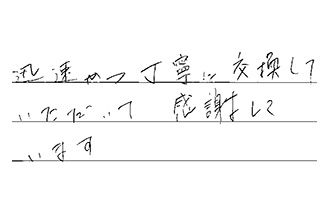 迅速かつ丁寧に交換して
いただいて 感謝して
います